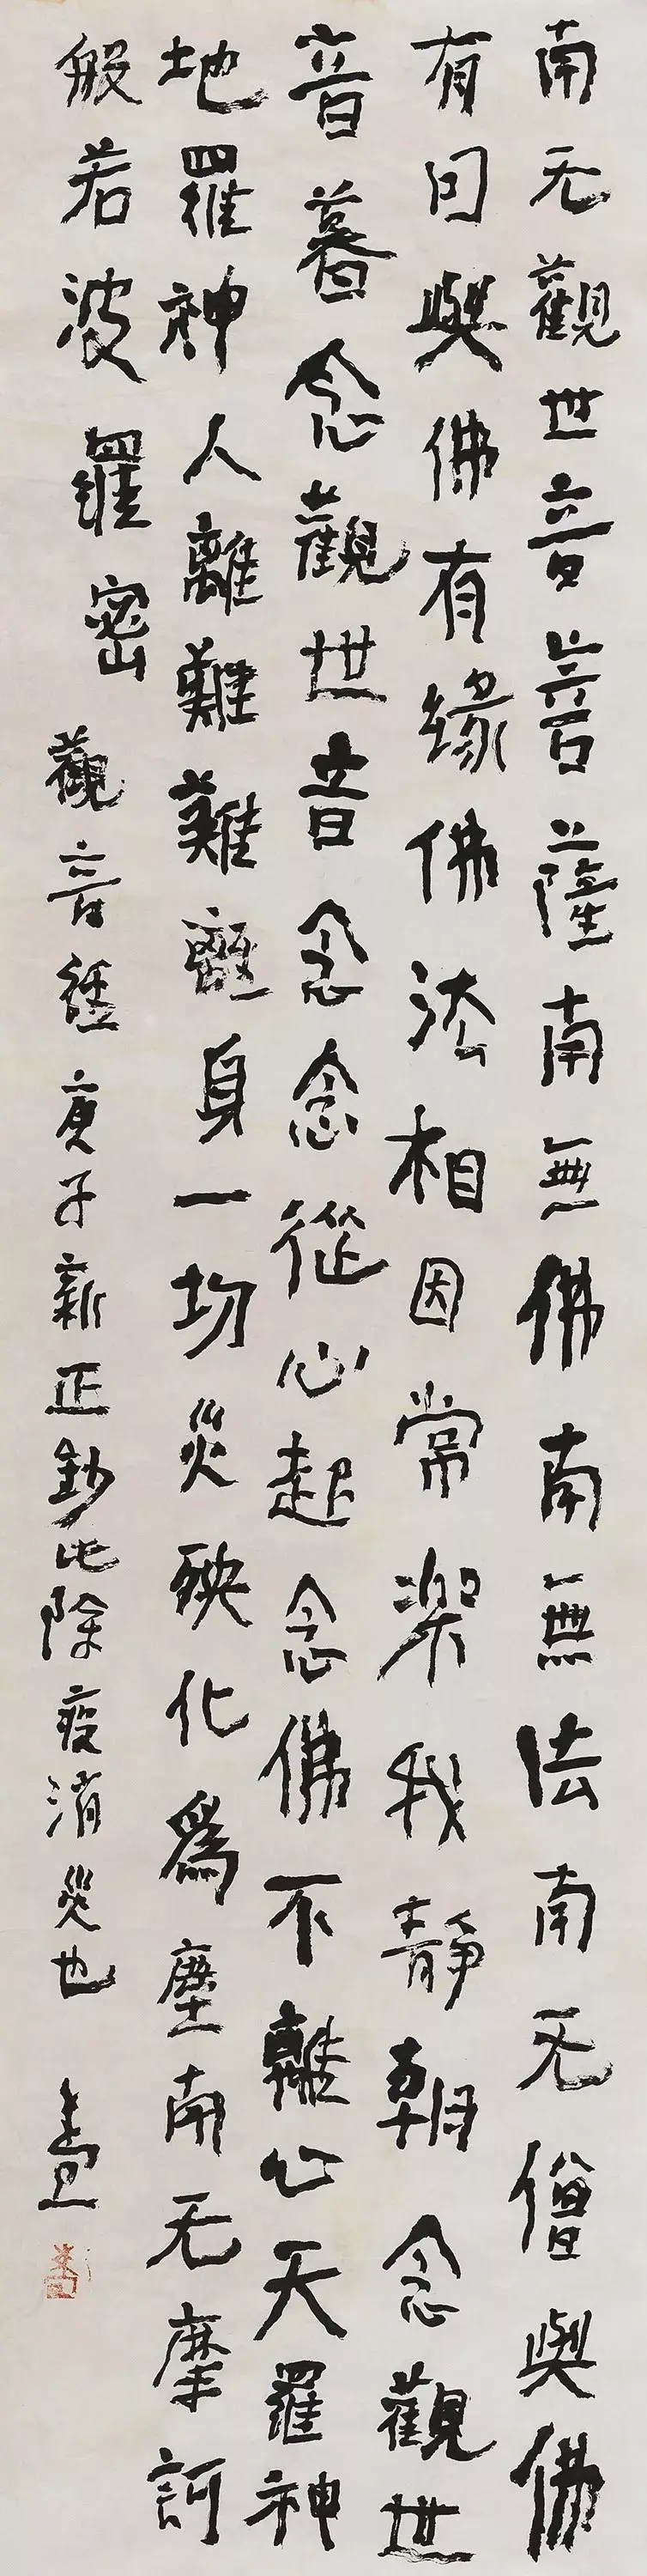 南无觀世音菩薩南無佛南無法南无僧與佛
有囙與佛有缘佛法相因常樂我靜朝念觀世
音暮念觀世音念念從心起念佛不離心天羅神
地羅神人離難難離身一切災殃化爲塵南无摩訶
般若波羅密
觀音經庚子新正鈔此除疫消災也